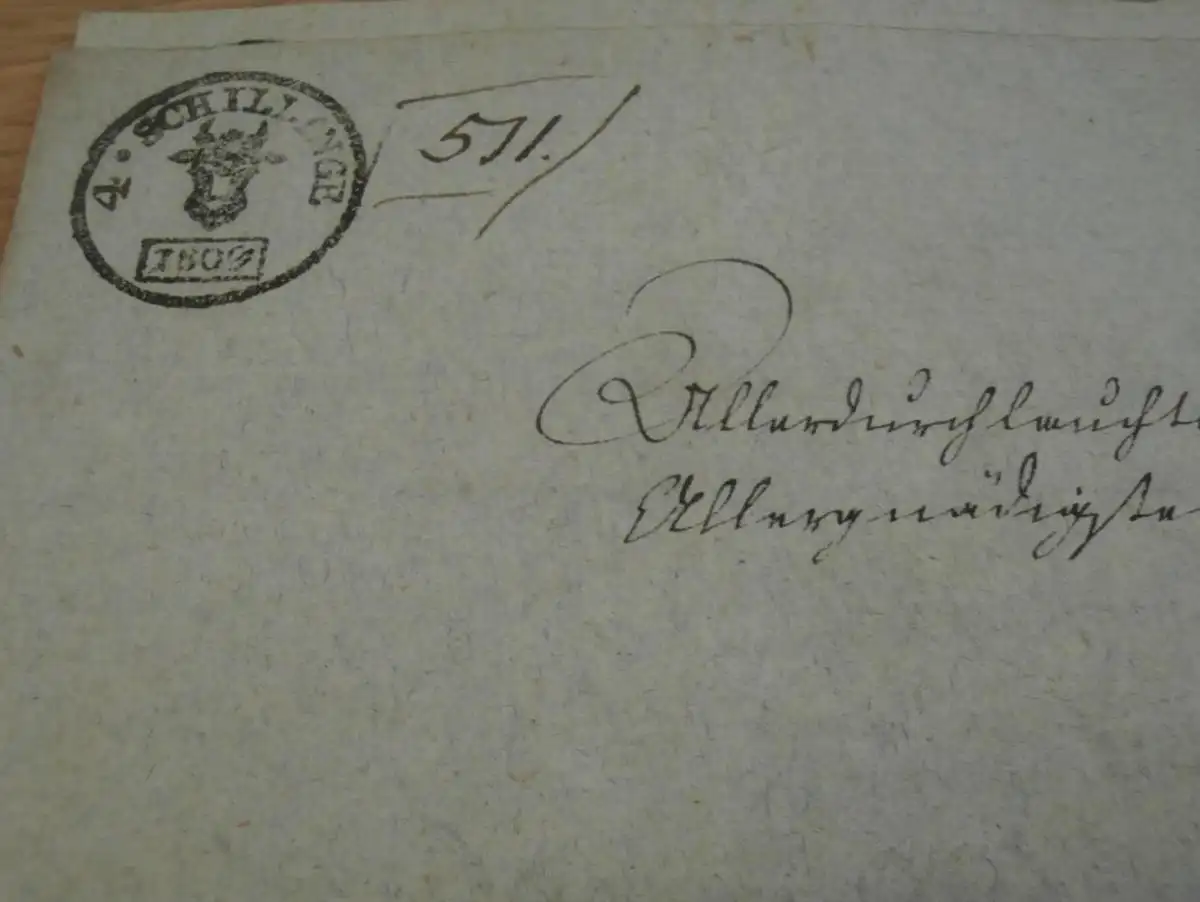 4 · SCHILLINGE
511.
Allerdurchlaucht
Allergnädigste